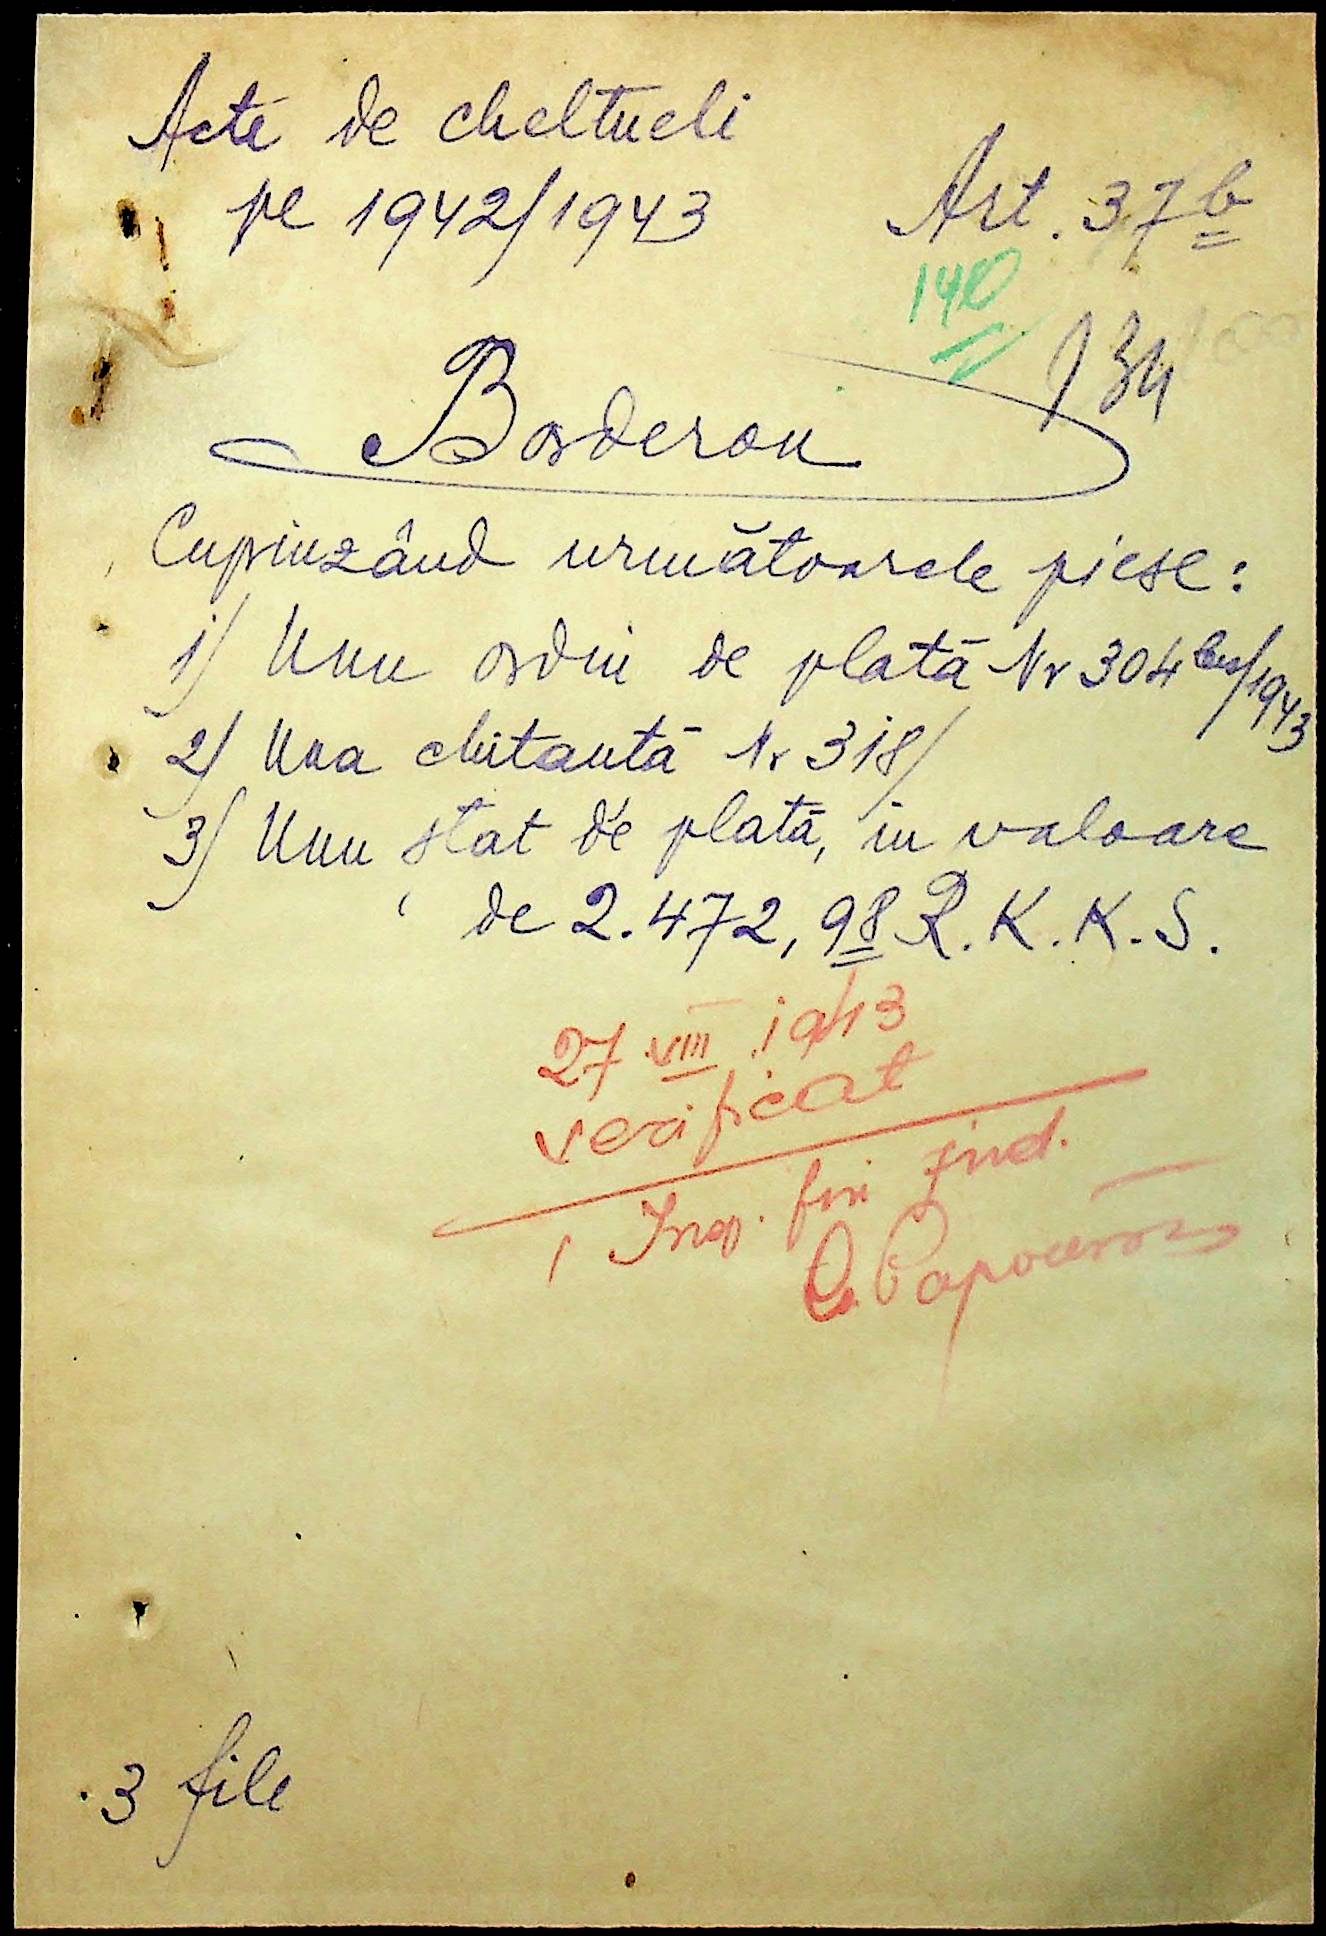 Acte de cheltueli
pe 1942/1943
Art. 37b
140
134
Borderou
Cuprinzând următoarele piese:
1) Unu ordin de plată Nr 304 bis/1943
2) Una chitanță Nr 318/
3) Unu stat de plată, in valoare
de 2.472,98 R.K.K.S.
27 VIII 1943
verificat
Insp. fin jud.
3 file